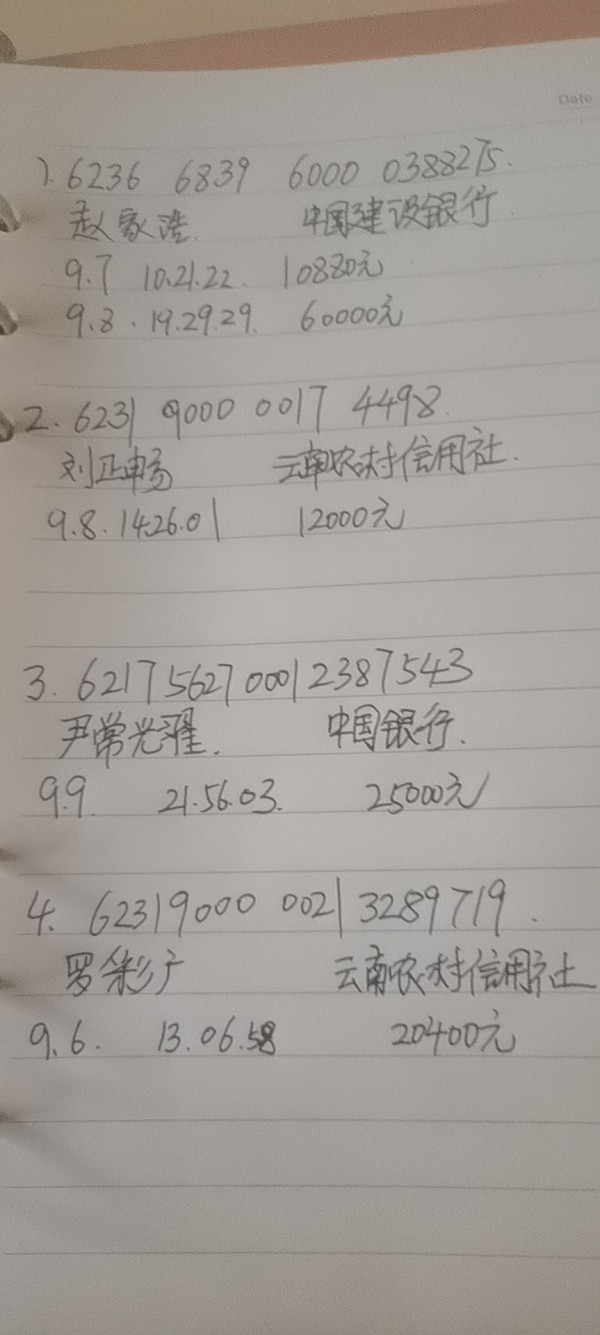 Date
1. 6236 6839 6000 0388275.
赵家浩. 中国建设银行.
9.7 10.21.22. 10880元
9.8. 19.29.29. 60000元
2. 6231 9000 0017 4498.
刘正畅 云南农村信用社.
9.8.14.26.01 12000元
3. 6217 5627 0001 2387543
尹常光耀. 中国银行.
9.9. 21.56.03. 25000元
4. 6231 9000 0021 3289719.
罗彩广 云南农村信用社
9.6. 13.06.58 20400元